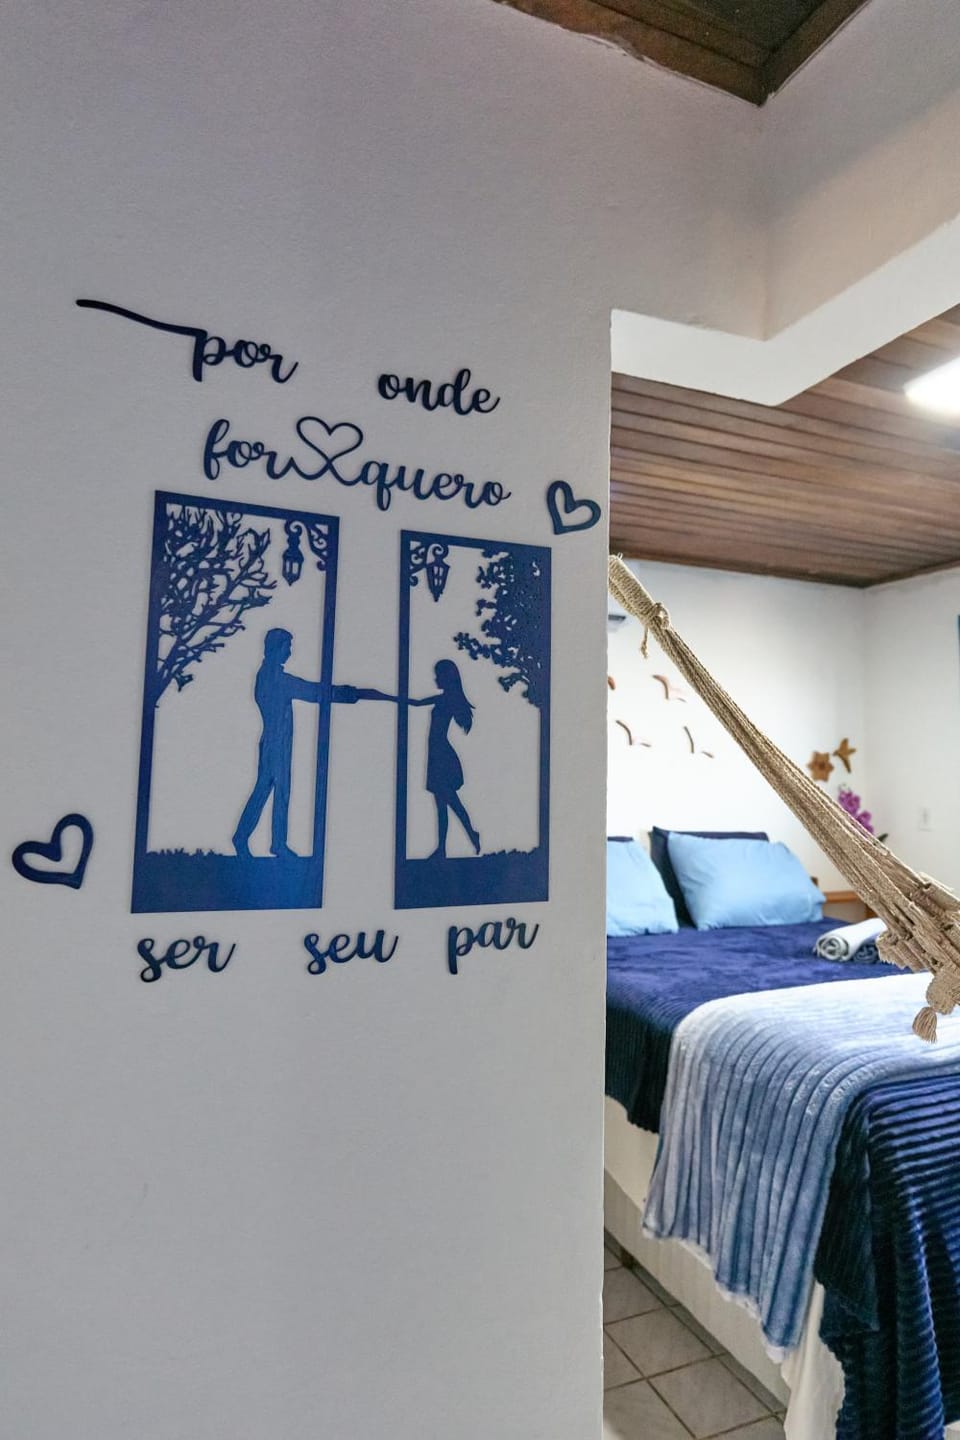 por onde
for quero
ser seu par